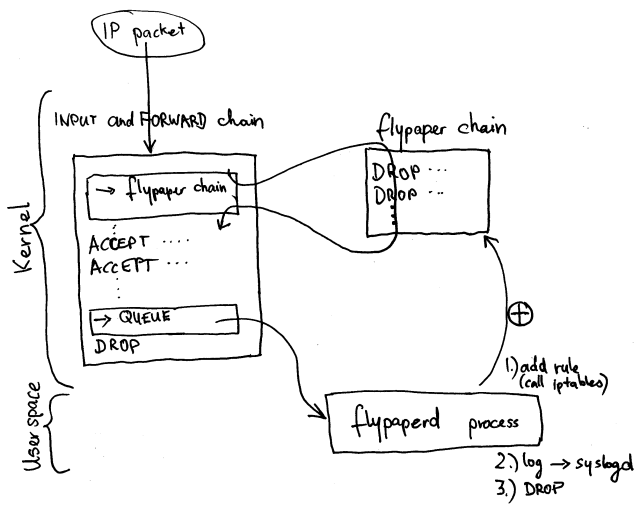 IP packet
INPUT and FORWARD chain
flypaper chain
→ flypaper chain
DROP ...
DROP ..
ACCEPT ....
ACCEPT ...
→ QUEUE
DROP
Kernel
1.) add rule
(call iptables)
User space
flypaperd process
2.) log → syslogd
3.) DROP